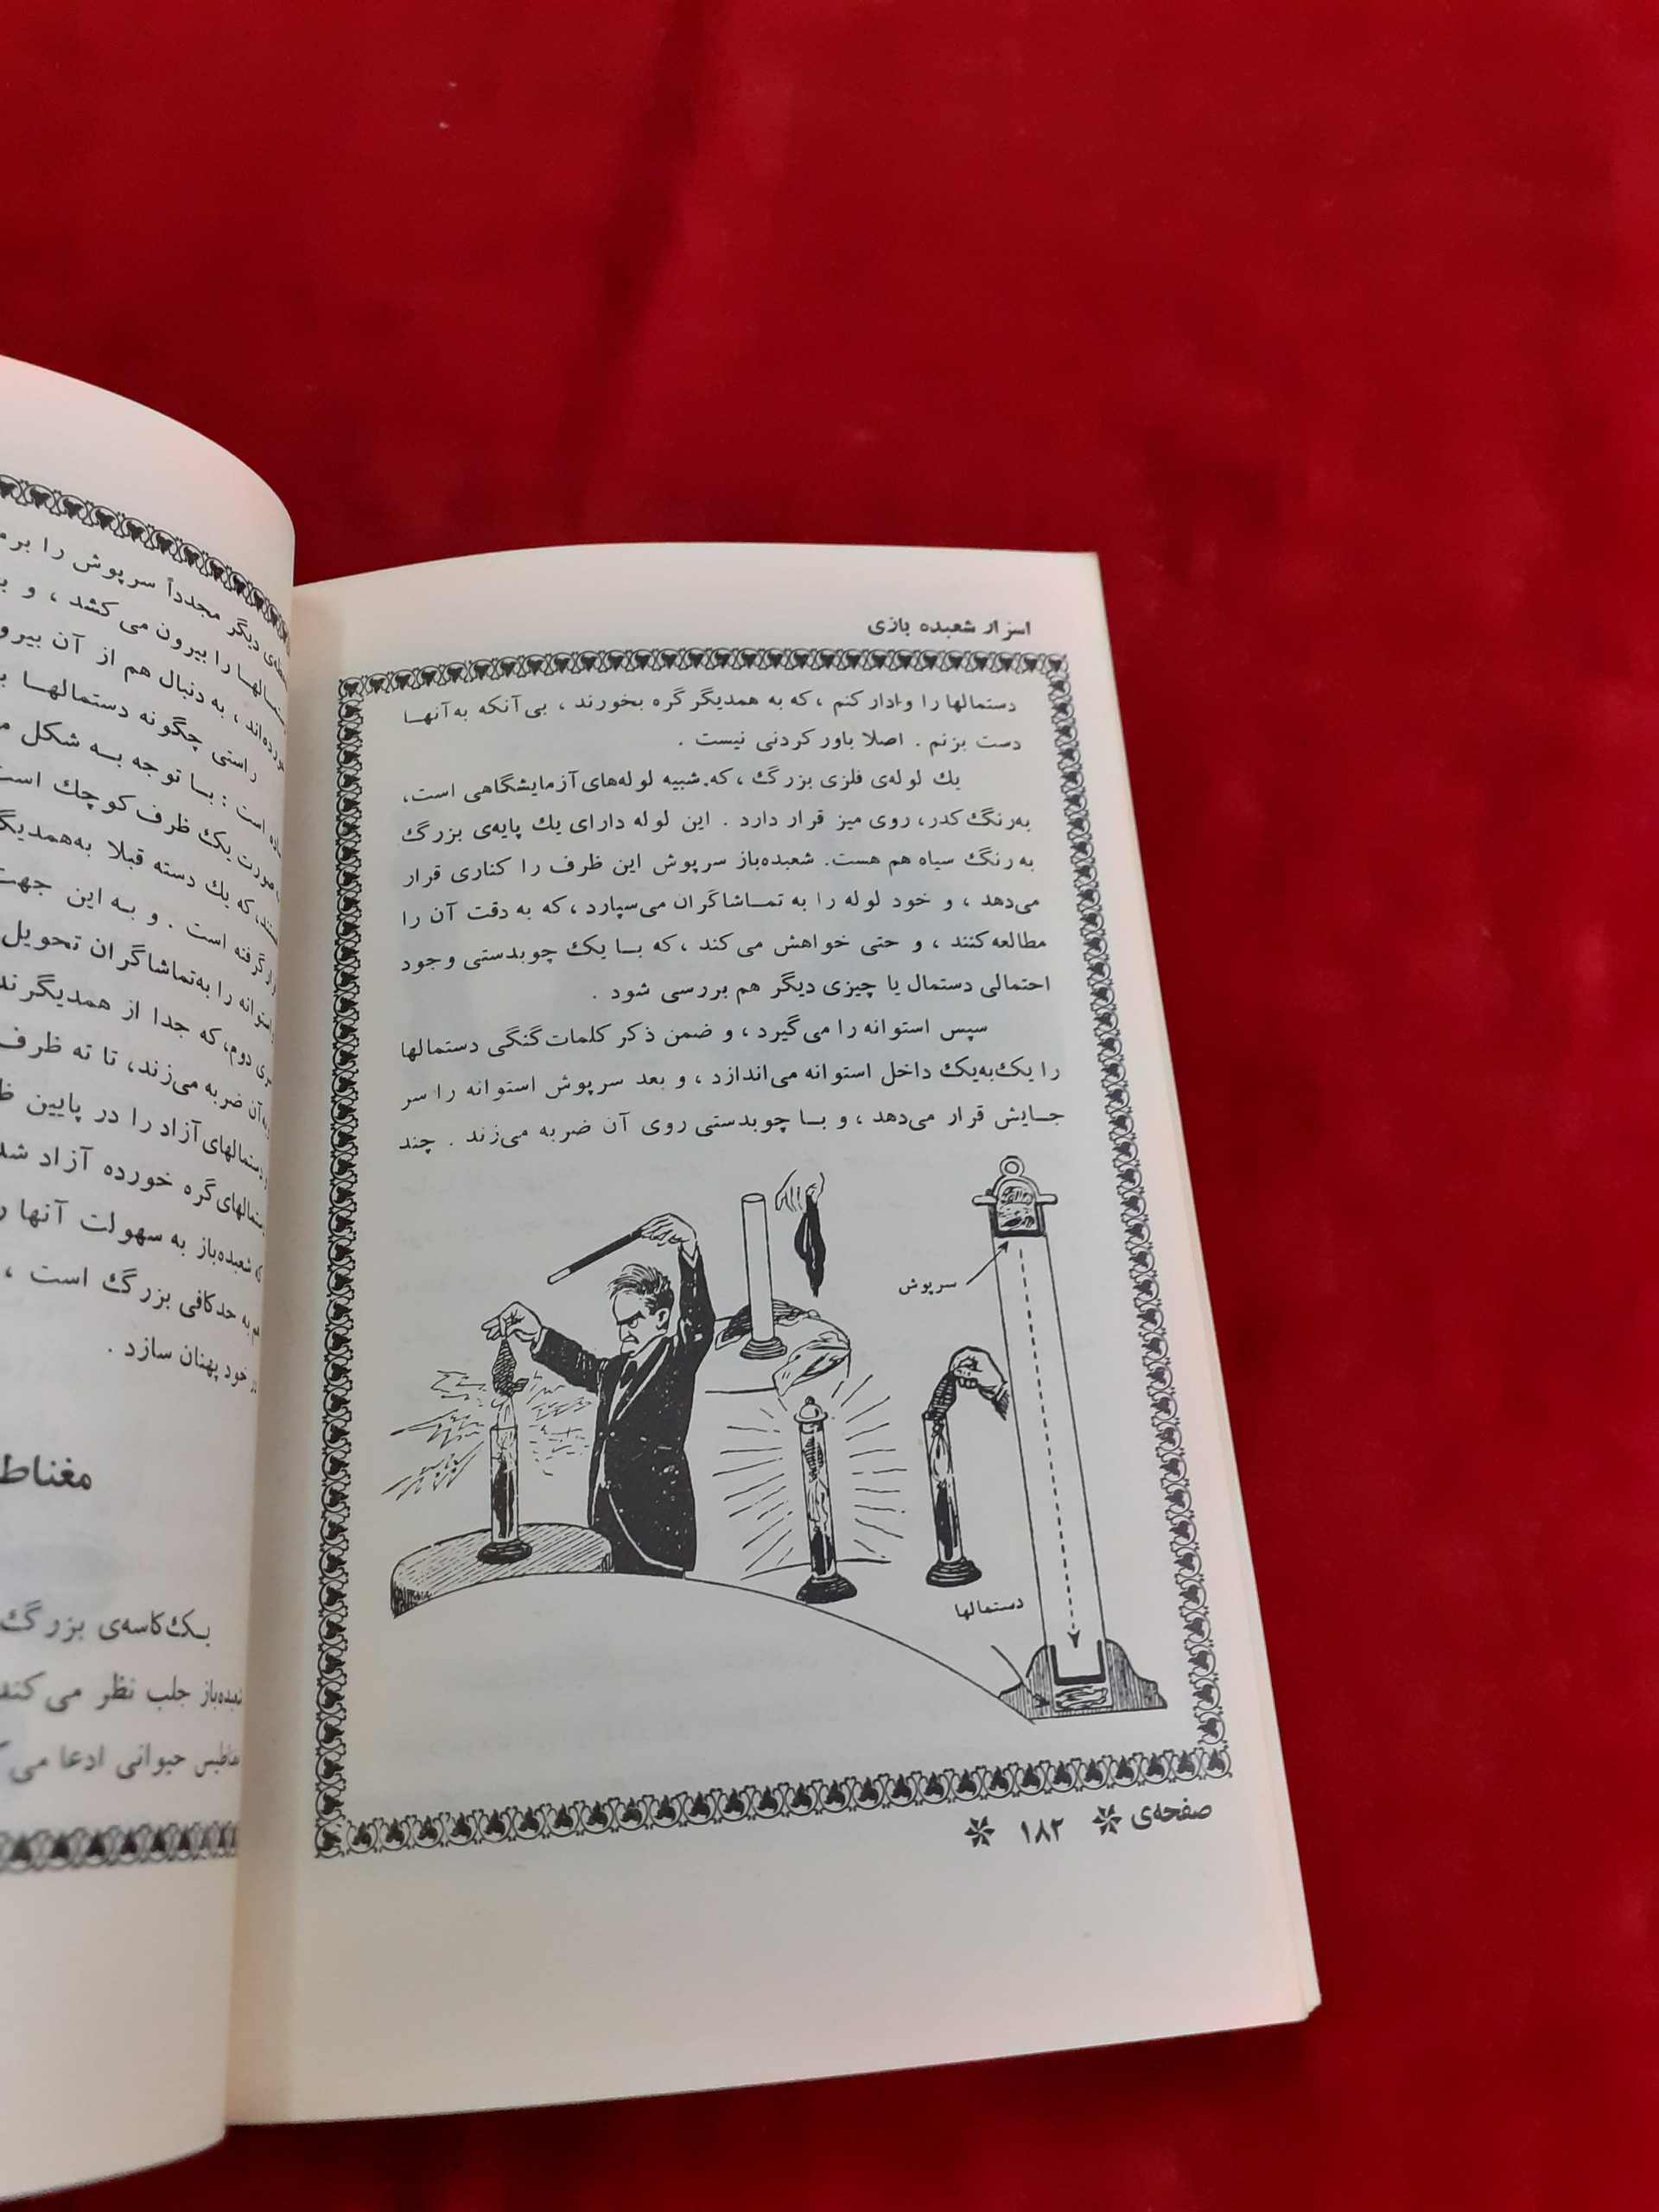 اسرار شعبده بازی
دستمالها را وادار کنم ، که به همدیگر گره بخورند ، بی‌آنکه به‌آنها
دست بزنم . اصلا باور کردنی نیست .
یك لوله‌ی فلزی بزرگ ، که شبیه لوله‌های آزمایشگاهی است،
به‌رنگ کدر، روی میز قرار دارد . این لوله دارای یك پایه‌ی بزرگ
به رنگ سیاه هم هست. شعبده‌باز سرپوش این ظرف را کناری قرار
می‌دهد ، و خود لوله را به تماشاگران می‌سپارد ، که به دقت آن را
مطالعه کنند ، و حتی خواهش می‌کند ، که با یک چوبدستی وجود
احتمالی دستمال یا چیزی دیگر هم بررسی شود .
سپس استوانه را می‌گیرد ، و ضمن ذکر کلمات گنگی دستمالها
را یك‌به‌یك داخل استوانه می‌اندازد ، و بعد سرپوش استوانه را سر
جایش قرار می‌دهد ، و با چوبدستی روی آن ضربه می‌زند . چند
سرپوش
دستمالها
صفحه‌ی ۱۸۲
دیگر مجدداً سرپوش را
را بیرون می کشد ، و
، به دنبال هم از آن
راستی چگونه دستمالها
است : با توجه به شکل
صورت یك ظرف کوچك است
که یك دسته قبلا به‌همدیگر
گرفته است . و به این جهت
استوانه را به‌تماشاگران تحویل
دوم، که جدا از همدیگرند
ضربه می‌زند، تا ته ظرف
دستمالهای آزاد را در پایین
گره خورده آزاد
شعبده‌باز به سهولت آنها
به حدکافی بزرگ است ،
خود پنهان سازد .
یك کاسه‌ی بزرگ
شعبده‌باز جلب نظر می کند
حیوانی ادعا می